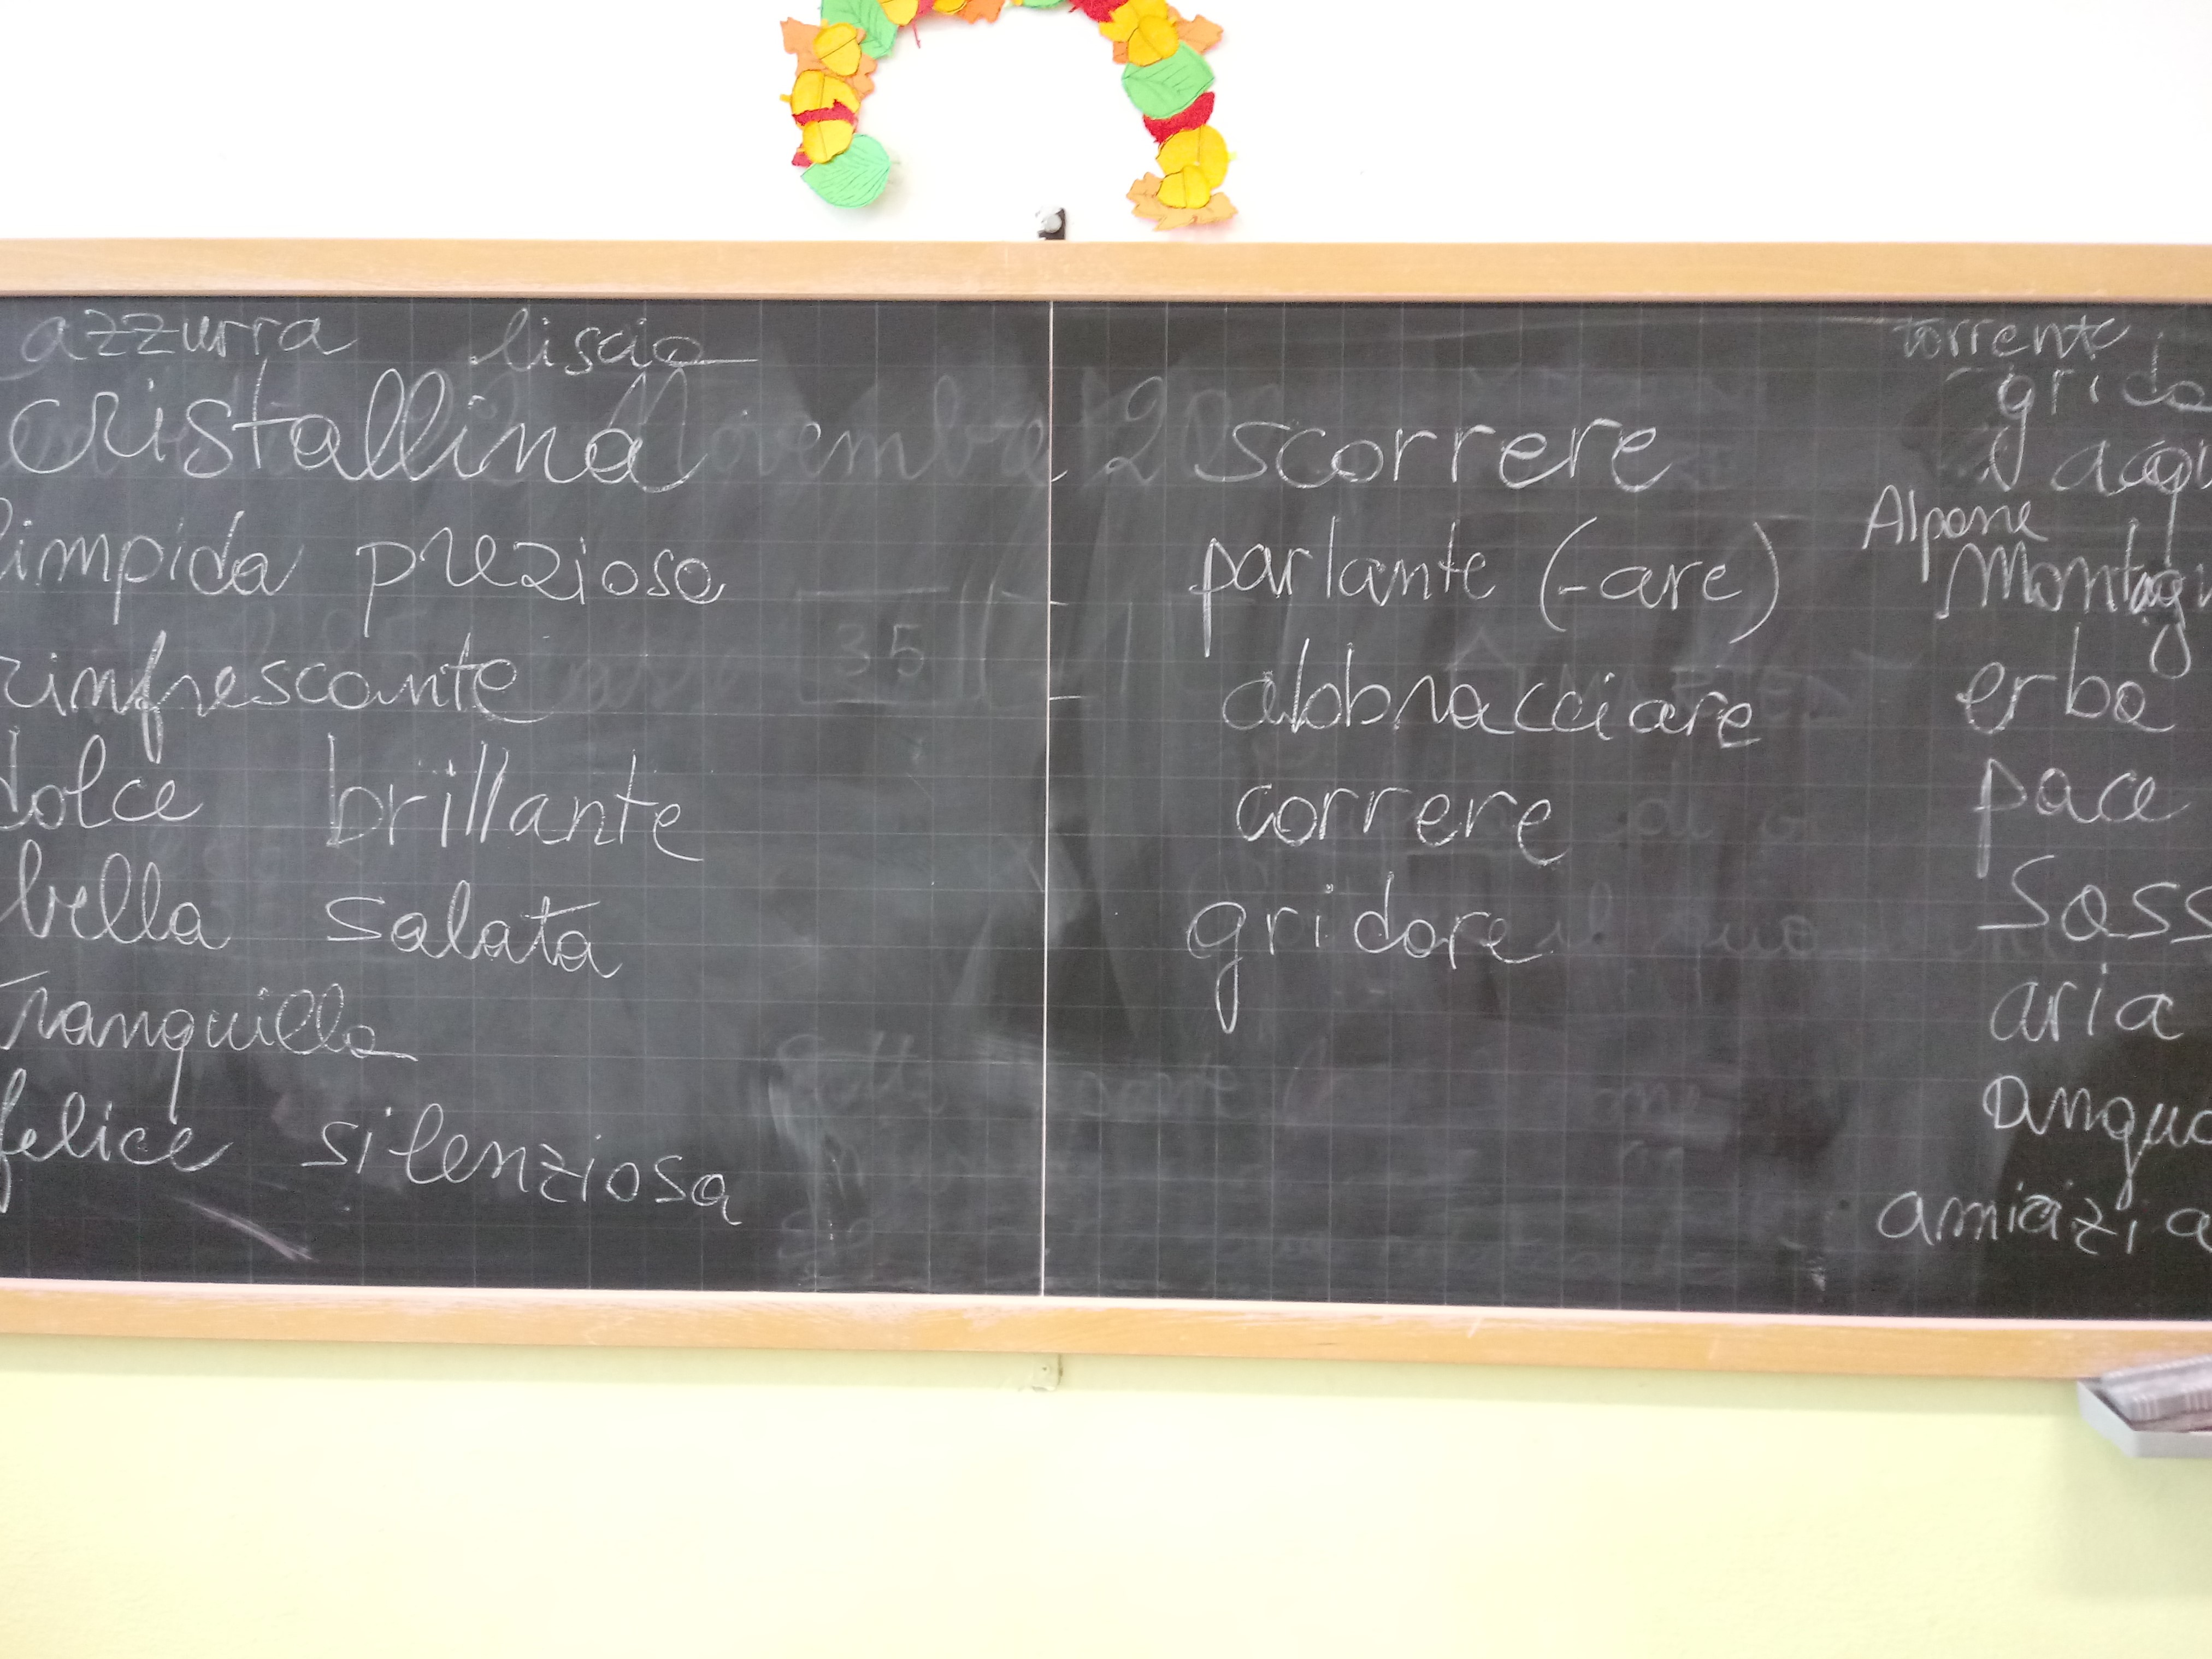 azzurra liscia
cristallina
limpida preziosa
rinfrescante
dolce brillante
bella salata
Tranquilla
felice silenziosa
Novembre 2
35
scorrere
parlante (-are)
abbracciare
correre
gridare
torrente
grida
acqu
Alpone
Montag
erba
pace
Sass
aria
angua
amicizia